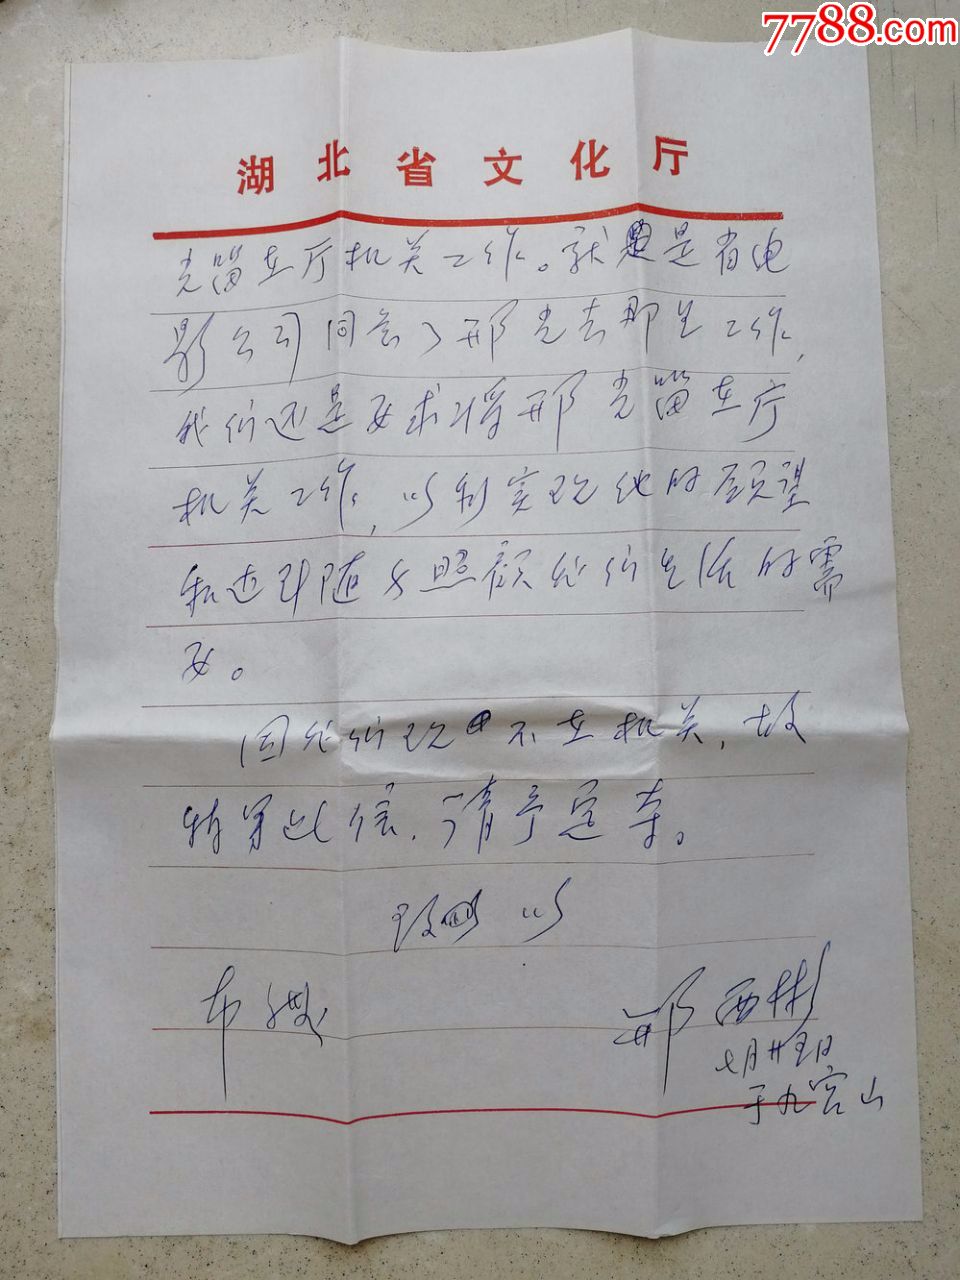 7788.com
湖北省文化厅
光留在厅机关工作。就是省电
影公司同意了邢光去那里工作,
我们还是要求将邢光留在厅
机关工作,以利实现他的愿望
和随身照顾我们生活的需
要。
因我们现不在机关,故
特写此信,请予
致以
布
邢西彬
七月廿五日
于九宫山